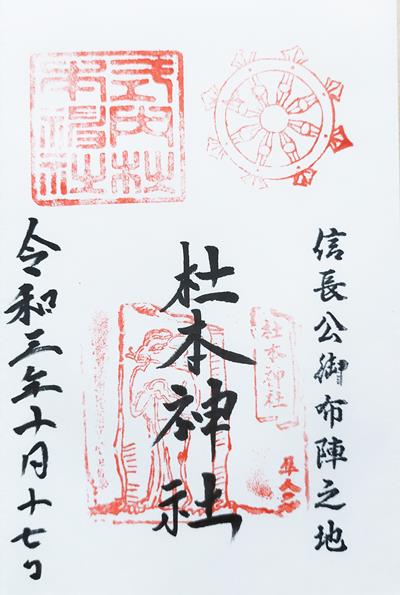 信長公御布陣之地
杜本神社
令和三年十月十七日
杜本神社
隼人石